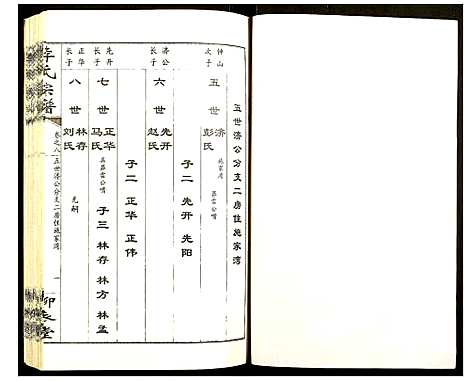 五世济公分支二房住施家湾
钟山
次子
五世
济
彭氏
施家湾
吕云公嘴
子二 先开 先阳
济公
长子
六世
先开
赵氏
子二 正华 正伟
先开
长子
七世
正华
马氏
吕云公嘴
子三 林存 林方 林孟
正华
长子
八世
林存
刘氏
无嗣
李氏宗谱
卷之八 五世济公分支二房住施家湾
一